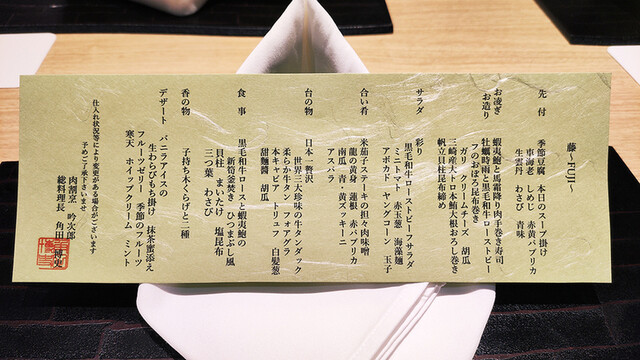 藤~FUJI~
先付
季節豆腐 本日のスープ掛け
車海老 しめじ 赤黄パプリカ
生雲丹 わさび 青味
お凌ぎ
蝦夷鮑と馬霜降り肉手巻き寿司
お造り
牡蠣時雨と黒毛和牛ローストビーフのおぼろ昆布巻き
ガリ クリームチーズ 胡瓜
三崎産大トロ本鮪大根おろし巻き
帆立貝柱昆布締め
サラダ
彩り 黒毛和牛ローストビーフサラダ
ミニトマト 赤玉葱 海藻麺
アボカド ヤングコーン 玉子
合い肴
米茄子ステーキの担々肉味噌
龍の黄身 蓮根 赤パプリカ
南瓜 青・黄ズッキーニ
アスパラ
台の物
日本一贅沢
世界三大珍味の牛タンダック
柔らか牛タン フォアグラ
本キャビア トリュフ 白髪葱
甜麺醤 胡瓜
食事
黒毛和牛ロースと蝦夷鮑の
新筍釜炊き ひつまぶし風
貝柱 まいたけ 塩昆布
三つ葉 わさび
香の物
子持ち木くらげと二種
デザート
バニラアイスの
生わらびもち掛け 抹茶蜜添え
フルーツゼリー 季節のフルーツ
寒天 ホイップクリーム ミント
仕入れ状況等により変更がある場合がございます
予めご了承下さいませ
肉割烹 吟次郎
総料理長 角田 博史